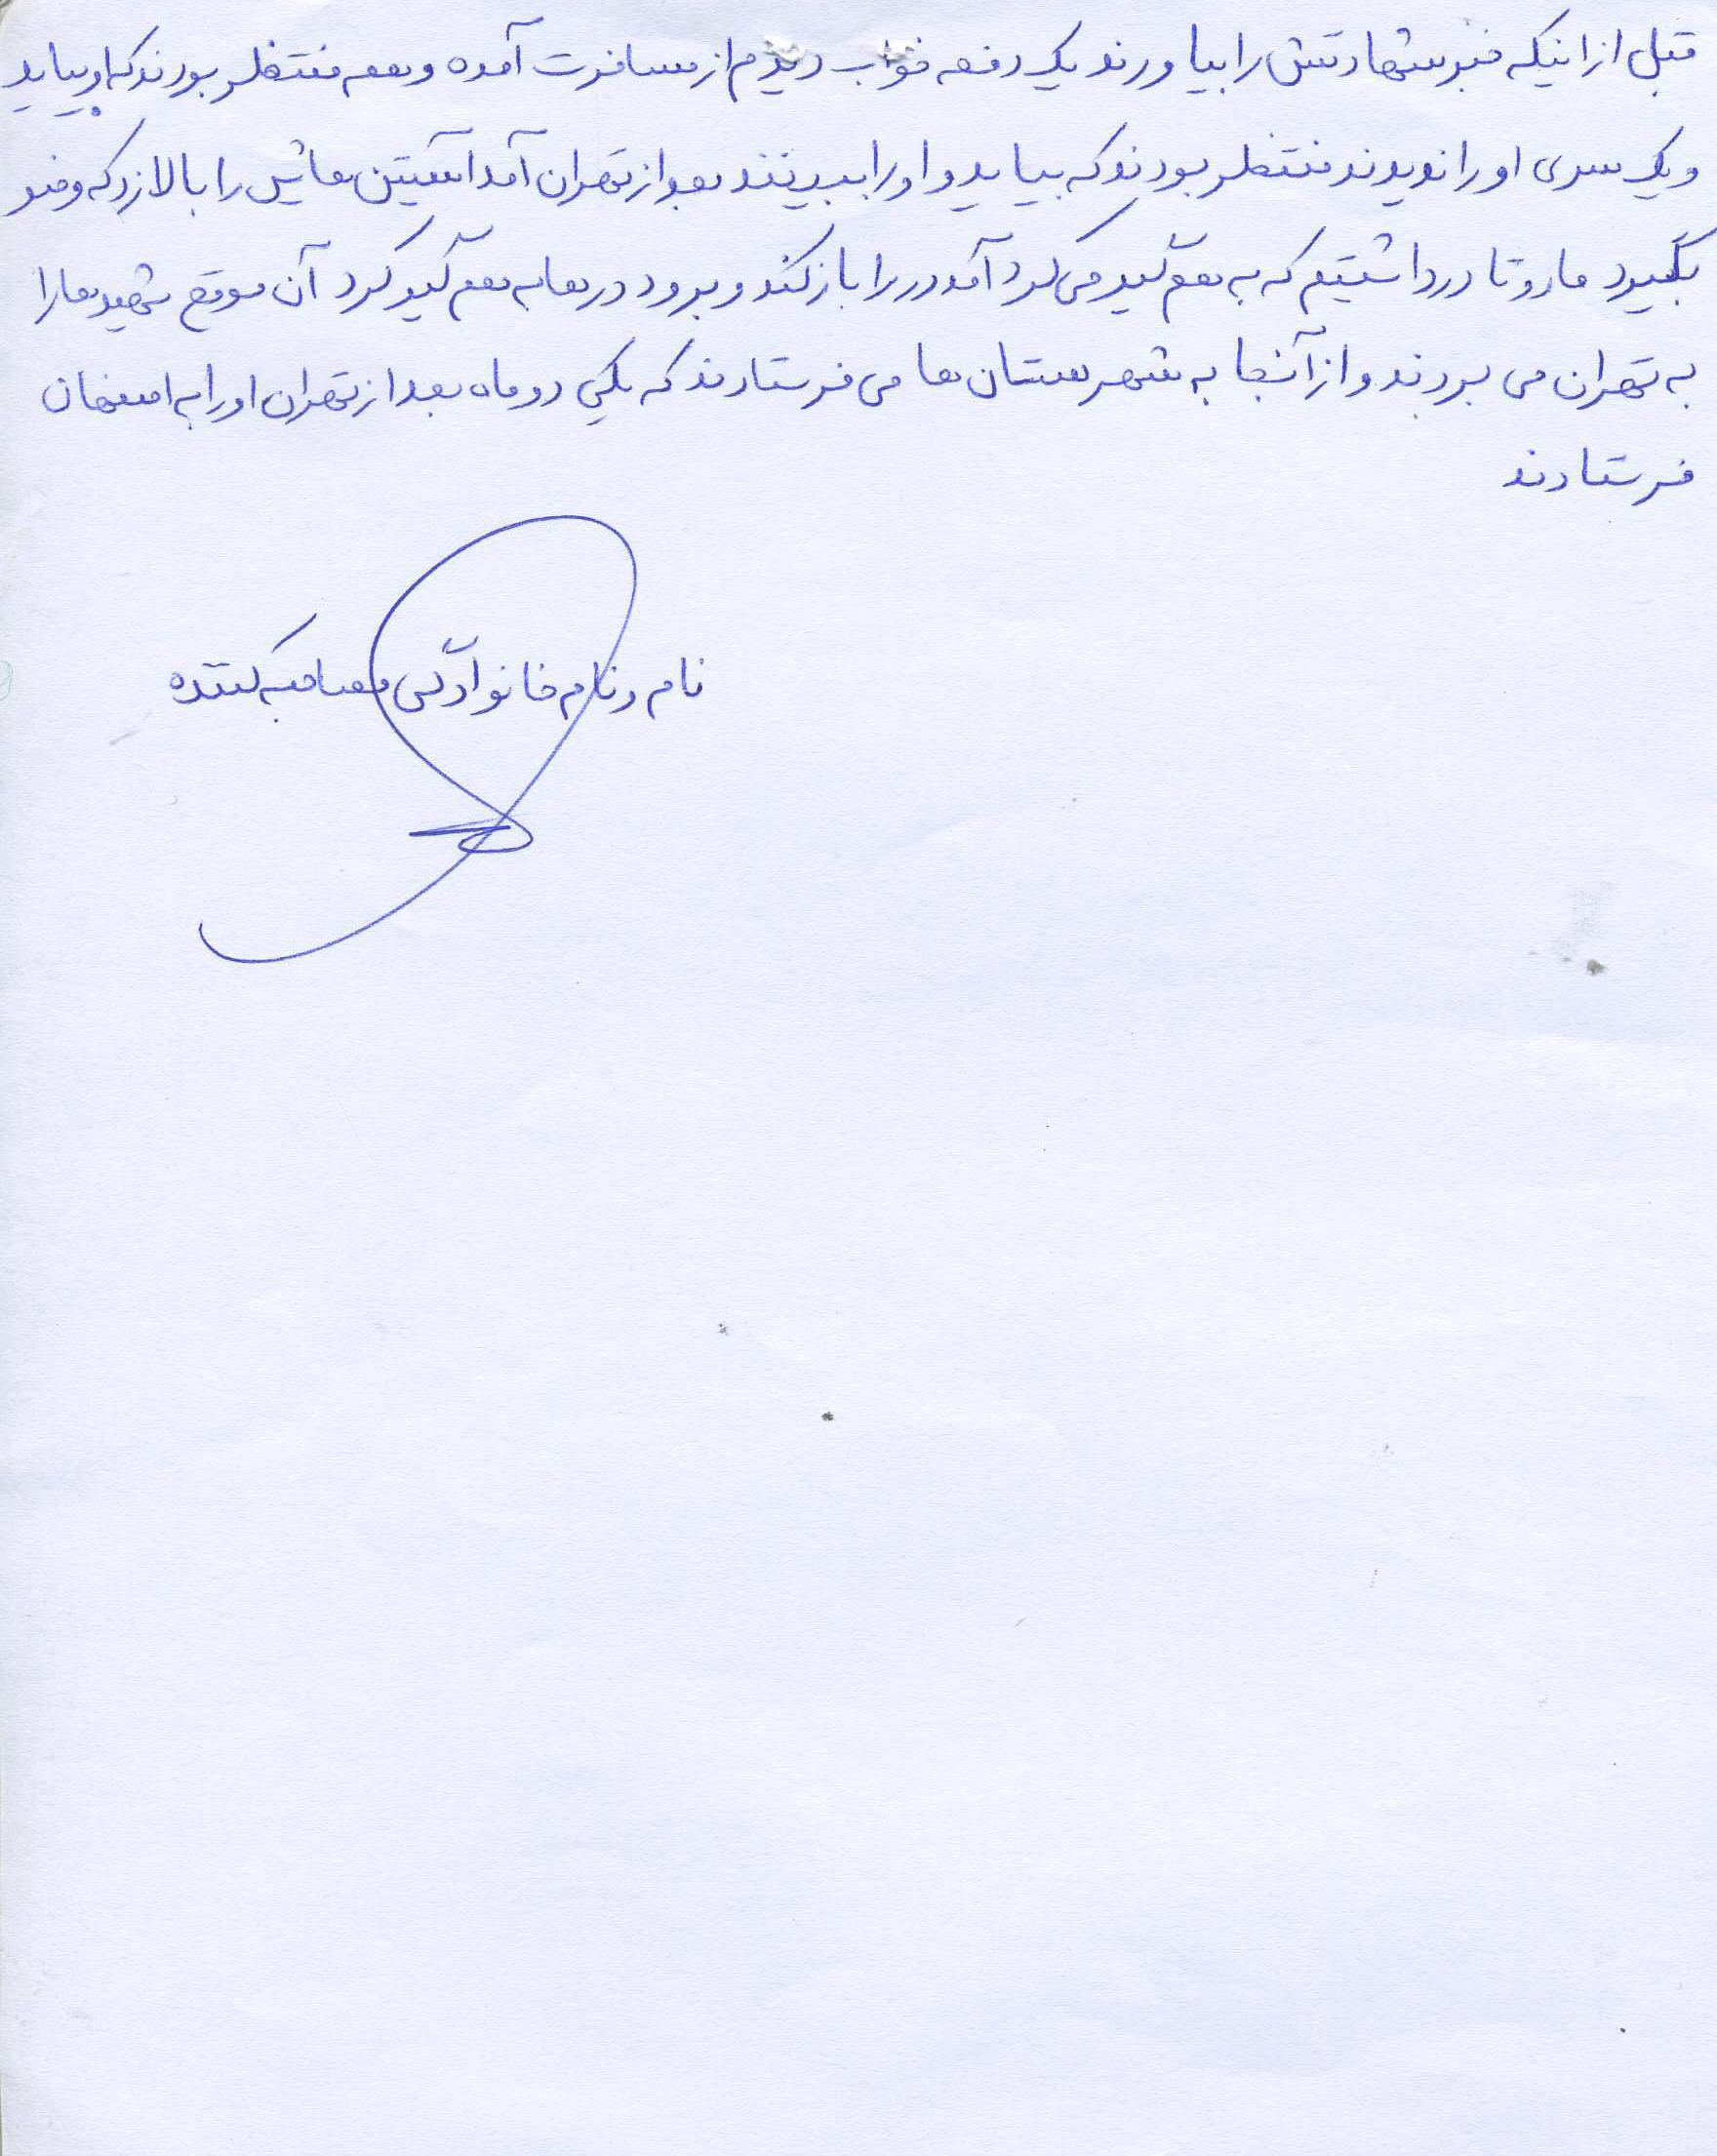 قبل از اینکه خبر شهادتش را بیاورند یک دفعه خواب دیدم از مسافرت آمده و همه منتظر بودند که او بیاید
و یک سری او را ندیدند منتظر بودند که بیاید و او را ببینند بعد از تهران آمد آستین هایش را بالا زد که وضو
بگیرد ما دو تا در داشتیم که به هم گیر می کرد آمد در را باز کند و برود درها به هم گیر کرد آن موقع شهید ها را
به تهران می بردند و از آنجا به شهرستان ها می فرستادند که یکی دو ماه بعد از تهران او را به اصفهان
فرستادند
نام و نام خانوادگی مصاحبه کننده